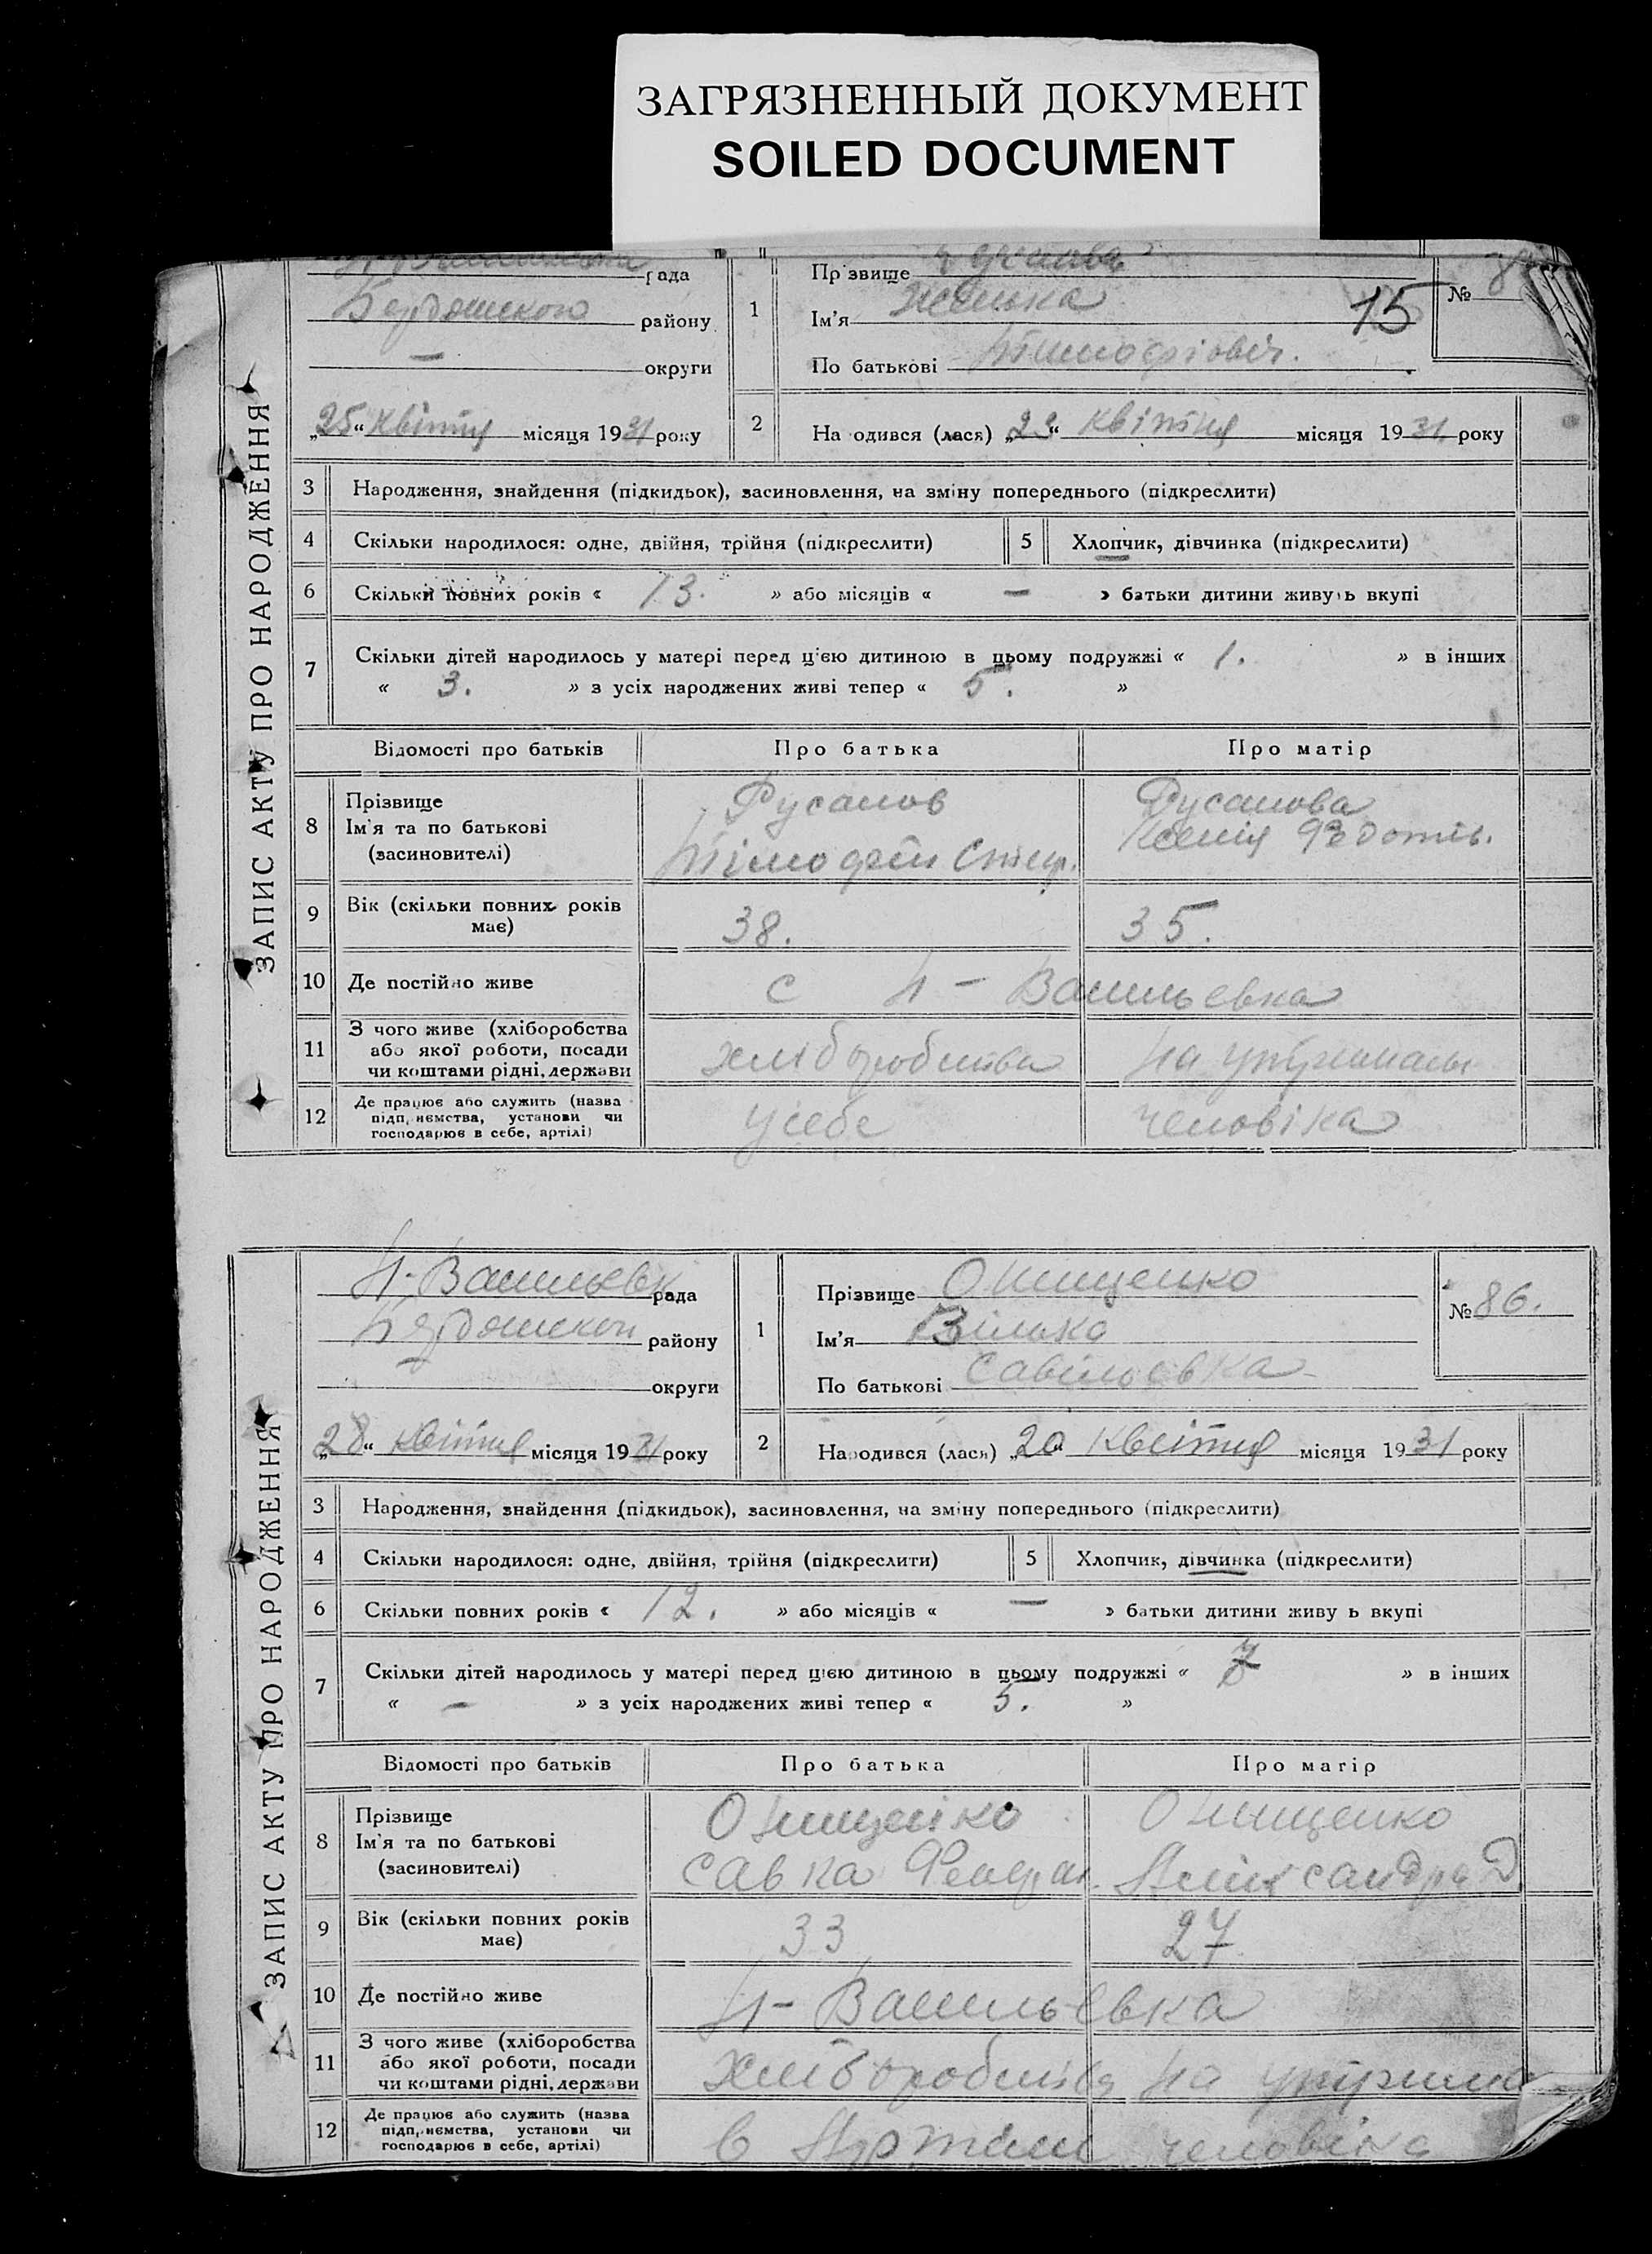 ЗАГРЯЗНЕННЫЙ ДОКУМЕНТ
SOILED DOCUMENT
ЗАПИС АКТУ ПРО НАРОДЖЕННЯ
рада
району
— округи
„25“ квітня місяця 1931 року
1 Прізвище
Ім'я
По батькові
15
№
2 На одився (лася) „23“ квітня місяця 1931 року
3 Народження, знайдення (підкидьок), засиновлення, на зміну попереднього (підкреслити)
4 Скільки народилося: одне, двійня, трійня (підкреслити) 5 Хлопчик, дівчинка (підкреслити)
6 Скільки повних років « 13. » або місяців « — » батьки дитини живуть вкупі
7 Скільки дітей народилось у матері перед цією дитиною в цьому подружжі « 1. » в інших
« 3. » з усіх народжених живі тепер « 5. »
Відомості про батьків Про батька Про матір
8 Прізвище
Ім'я та по батькові
(засиновителі)
Русанов
Русанова
9 Вік (скільки повних років
має)
38. 35.
10 Де постійно живе
с Н - Васильевка
11 З чого живе (хліборобства
або якої роботи, посади
чи коштами рідні, держави
12 Де працює або служить (назва
підприємства, установи чи
господарює в себе, артілі)
у себе человіка
ЗАПИС АКТУ ПРО НАРОДЖЕННЯ
Н-Васильевк рада
району
округи
„28“ квітня місяця 1931 року
1 Прізвище Онищенко
Ім'я
По батькові
№ 86.
2 Народився (лася) „20“ квітня місяця 1931 року
3 Народження, знайдення (підкидьок), засиновлення, на зміну попереднього (підкреслити)
4 Скільки народилося: одне, двійня, трійня (підкреслити) 5 Хлопчик, дівчинка (підкреслити)
6 Скільки повних років « 12. » або місяців « — » батьки дитини живу ь вкупі
7 Скільки дітей народилось у матері перед цією дитиною в цьому подружжі « » в інших
« — » з усіх народжених живі тепер « 5. »
Відомості про батьків Про батька Про матір
8 Прізвище
Ім'я та по батькові
(засиновителі)
Онищенко Онищенко
Савка Александра Д.
9 Вік (скільки повних років
має)
33 27
10 Де постійно живе
Н - Васильевка
11 З чого живе (хліборобства
або якої роботи, посади
чи коштами рідні, держави
на
12 Де працює або служить (назва
підприємства, установи чи
господарює в себе, артілі)
в Артели человіка